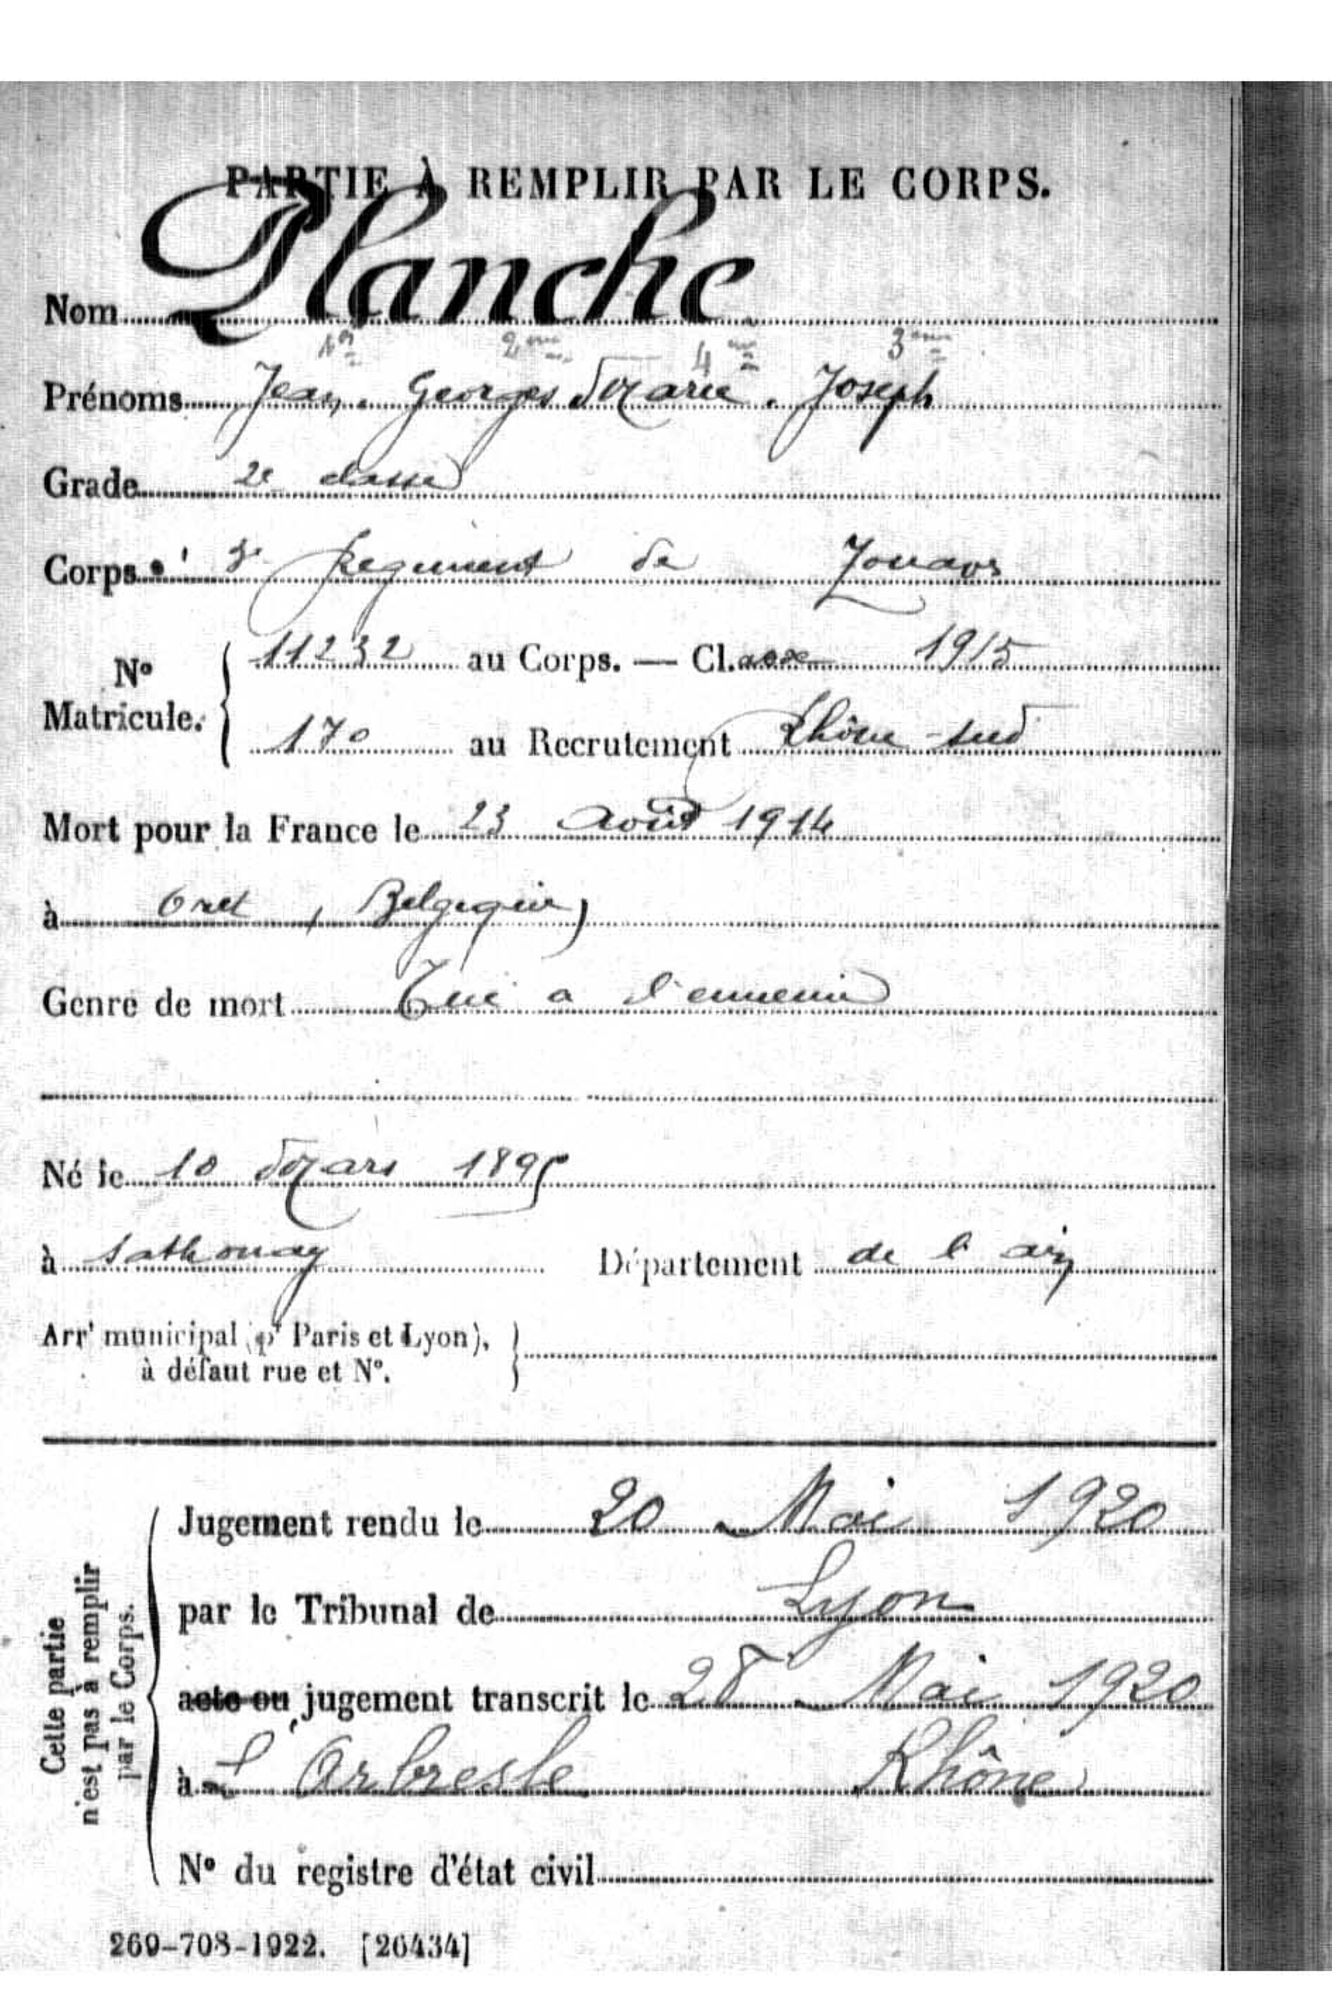 PARTIE À REMPLIR PAR LE CORPS.
Nom Planche
1er 2me 4me 3me
Prénoms Jean. Georges Marie. Joseph
Grade 2e classe
Corps 3e Régiment de Zouaves
N° Matricule. { 11232 au Corps. — Cl.asse 1915
170 au Recrutement Rhône-Sud
Mort pour la France le 23 Août 1914
à Oret, Belgique)
Genre de mort Tué a l'ennemi
Né le 10 Mars 1895
à Sathonay Département de l'ain
Arrt municipal (pr Paris et Lyon),
à défaut rue et N°.
Cette partie
n'est pas à remplir
par le Corps.
Jugement rendu le 20 Mai 1920
par le Tribunal de Lyon
acte ou jugement transcrit le 28 Mai 1920
à L'Arbresle Rhône
N° du registre d'état civil
269-708-1922. [26434]